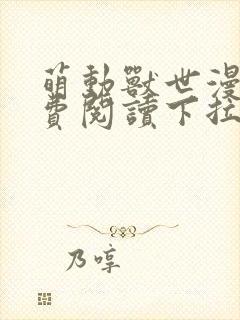 萌動獸世漫
費閱讀下拉
乃啍